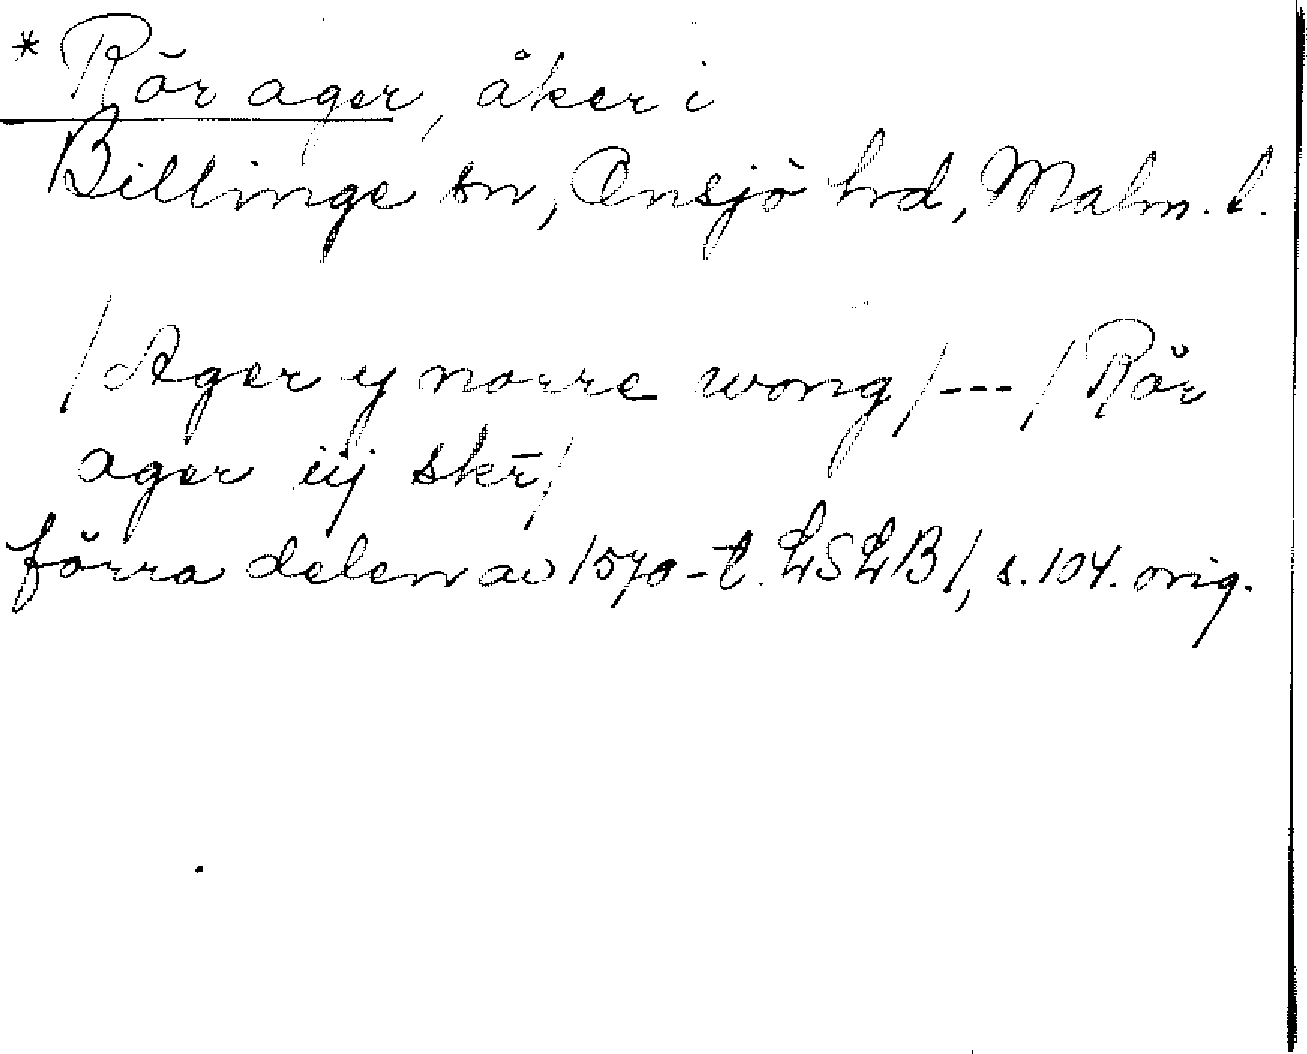 * Rör ager, åker i
Billinge sn, Onsjö hd, Malm. l.
/Ager y norre wong/---/Rör
ager iij skr̄/
förra delen av 1570-t. LSLB1, s.104. orig.